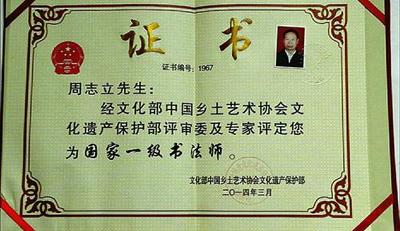 证书
证书编号：1967
周志立先生：
经文化部中国乡土艺术协会文
化遗产保护部评审委及专家评定您
为国家一级书法师。
文化部中国乡土艺术协会文化遗产保护部
二〇一四年三月